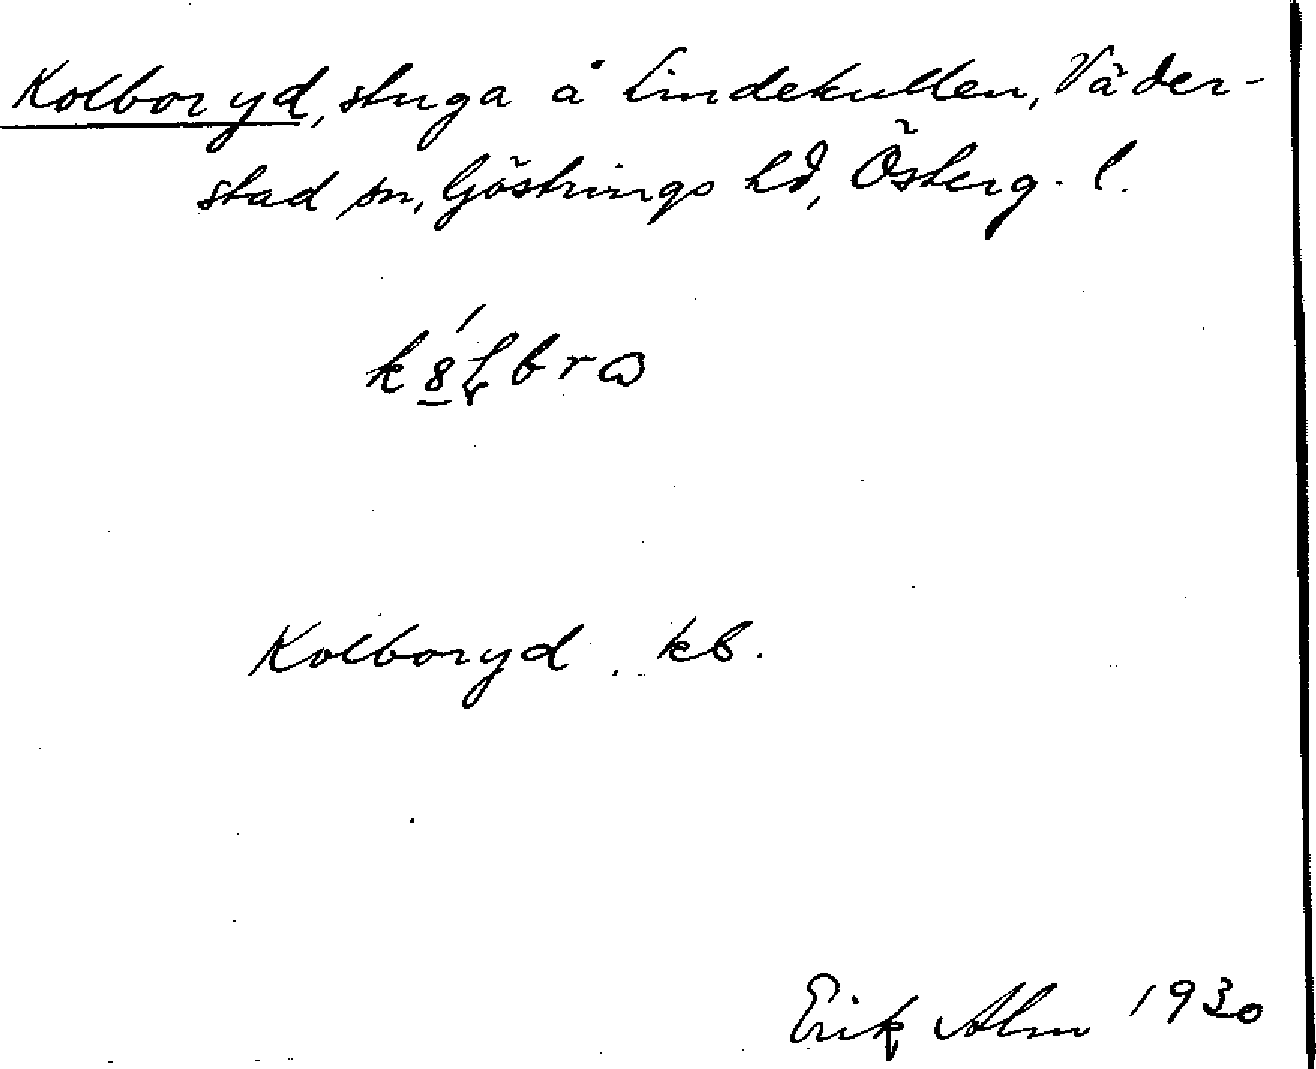 Kolboryd, stuga å Lindekullen, Väder-
stad sn, Göstrings hd, Österg. l.
Kolboryd. kb.
Erik Alm 1930